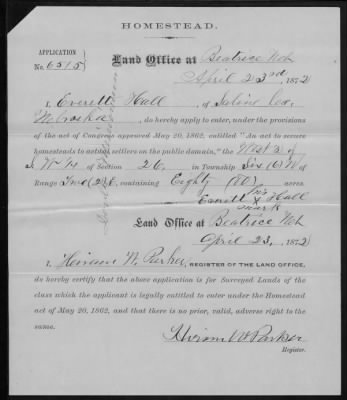 HOMESTEAD.
APPLICATION
No. 6515
Land Office at Beatrice Neb
April 23rd, 1872
I, Everett Hall, of Saline Co,
Nebraska, do hereby apply to enter, under the provisions
of the act of Congress approved May 20, 1862, entitled "An act to secure
homesteads to actual settlers on the public domain," the West ½ of
S W ¼ of Section 26, in Township Six (6) N of
Range Two (2) E, containing Eighty (80) acres.
his
Everett X Hall
mark
Land Office at Beatrice Neb
April 23, 1872
I, Heiram W. Parker, REGISTER OF THE LAND OFFICE,
do hereby certify that the above application is for Surveyed Lands of the
class which the applicant is legally entitled to enter under the Homestead
act of May 20, 1862, and that there is no prior, valid, adverse right to the
same.
Hiram W Parker
Register.